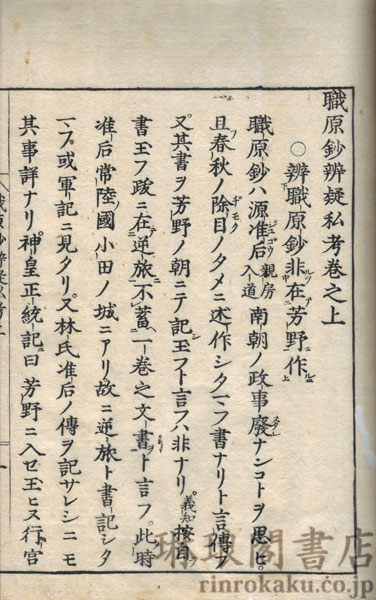 職原鈔辨疑私考巻之上
○辨職原鈔非在芳野作
職原鈔ハ源准后親房入道南朝ノ政事廢ナンコトヲ思ヒ。
且春秋ノ除目ノタメニ述作シタマフ書ナリト言傳フ
又其書ヲ芳野ノ朝ニテ記玉フト言フハ非ナリ。義知按自
書玉フ跋ニ在逆旅不蓄一巻之文書ト言フ。此時
准后常陸國小田ノ城ニアリ故ニ逆旅ト書記シタ
マフ或軍記ニ見タリ又林氏准后ノ傳ヲ記サレシニモ
其事詳ナリ神皇正統記曰芳野ニ入セ玉ヒヌ行宮
琳琅閣書店
rinrokaku.co.jp